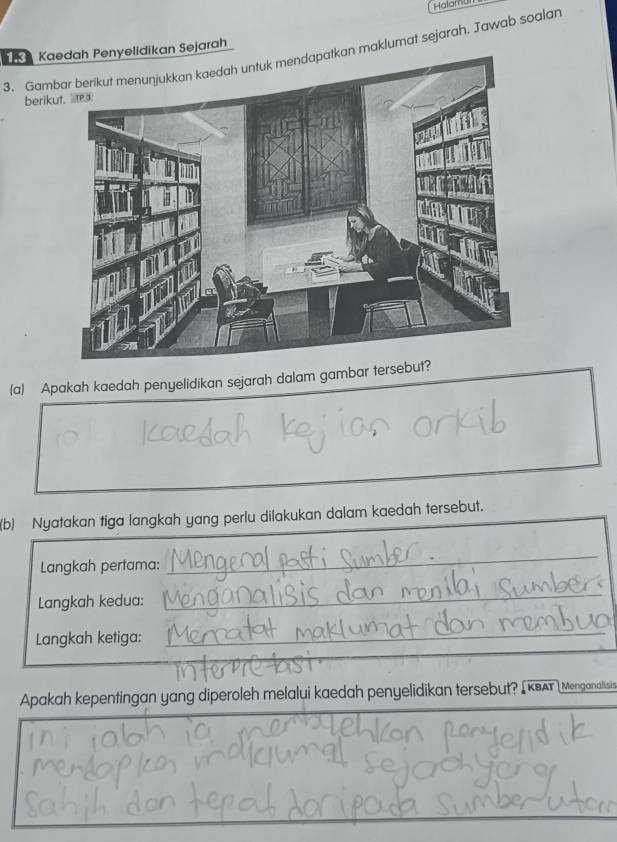 Halaman
1.3 Kaedah Penyelidikan Sejarah
3. Gambar berikut menunjukkan kaedah untuk mendapatkan maklumat sejarah. Jawab soalan
berikut. TP 3
(a) Apakah kaedah penyelidikan sejarah dalam gambar tersebut?
kaedah kejian orkib
(b) Nyatakan tiga langkah yang perlu dilakukan dalam kaedah tersebut.
Langkah pertama: Mengenal pasti sumber.
Langkah kedua: Menganalisis dan menilai sumber.
Langkah ketiga: Mencatat maklumat dan membua
interpretasi.
Apakah kepentingan yang diperoleh melalui kaedah penyelidikan tersebut? KBAT Menganalisis
ini ialah ia membolehkan penyelidik
mendapkan maklumat sejarah yang
sahih dan tepat daripada sumber utam